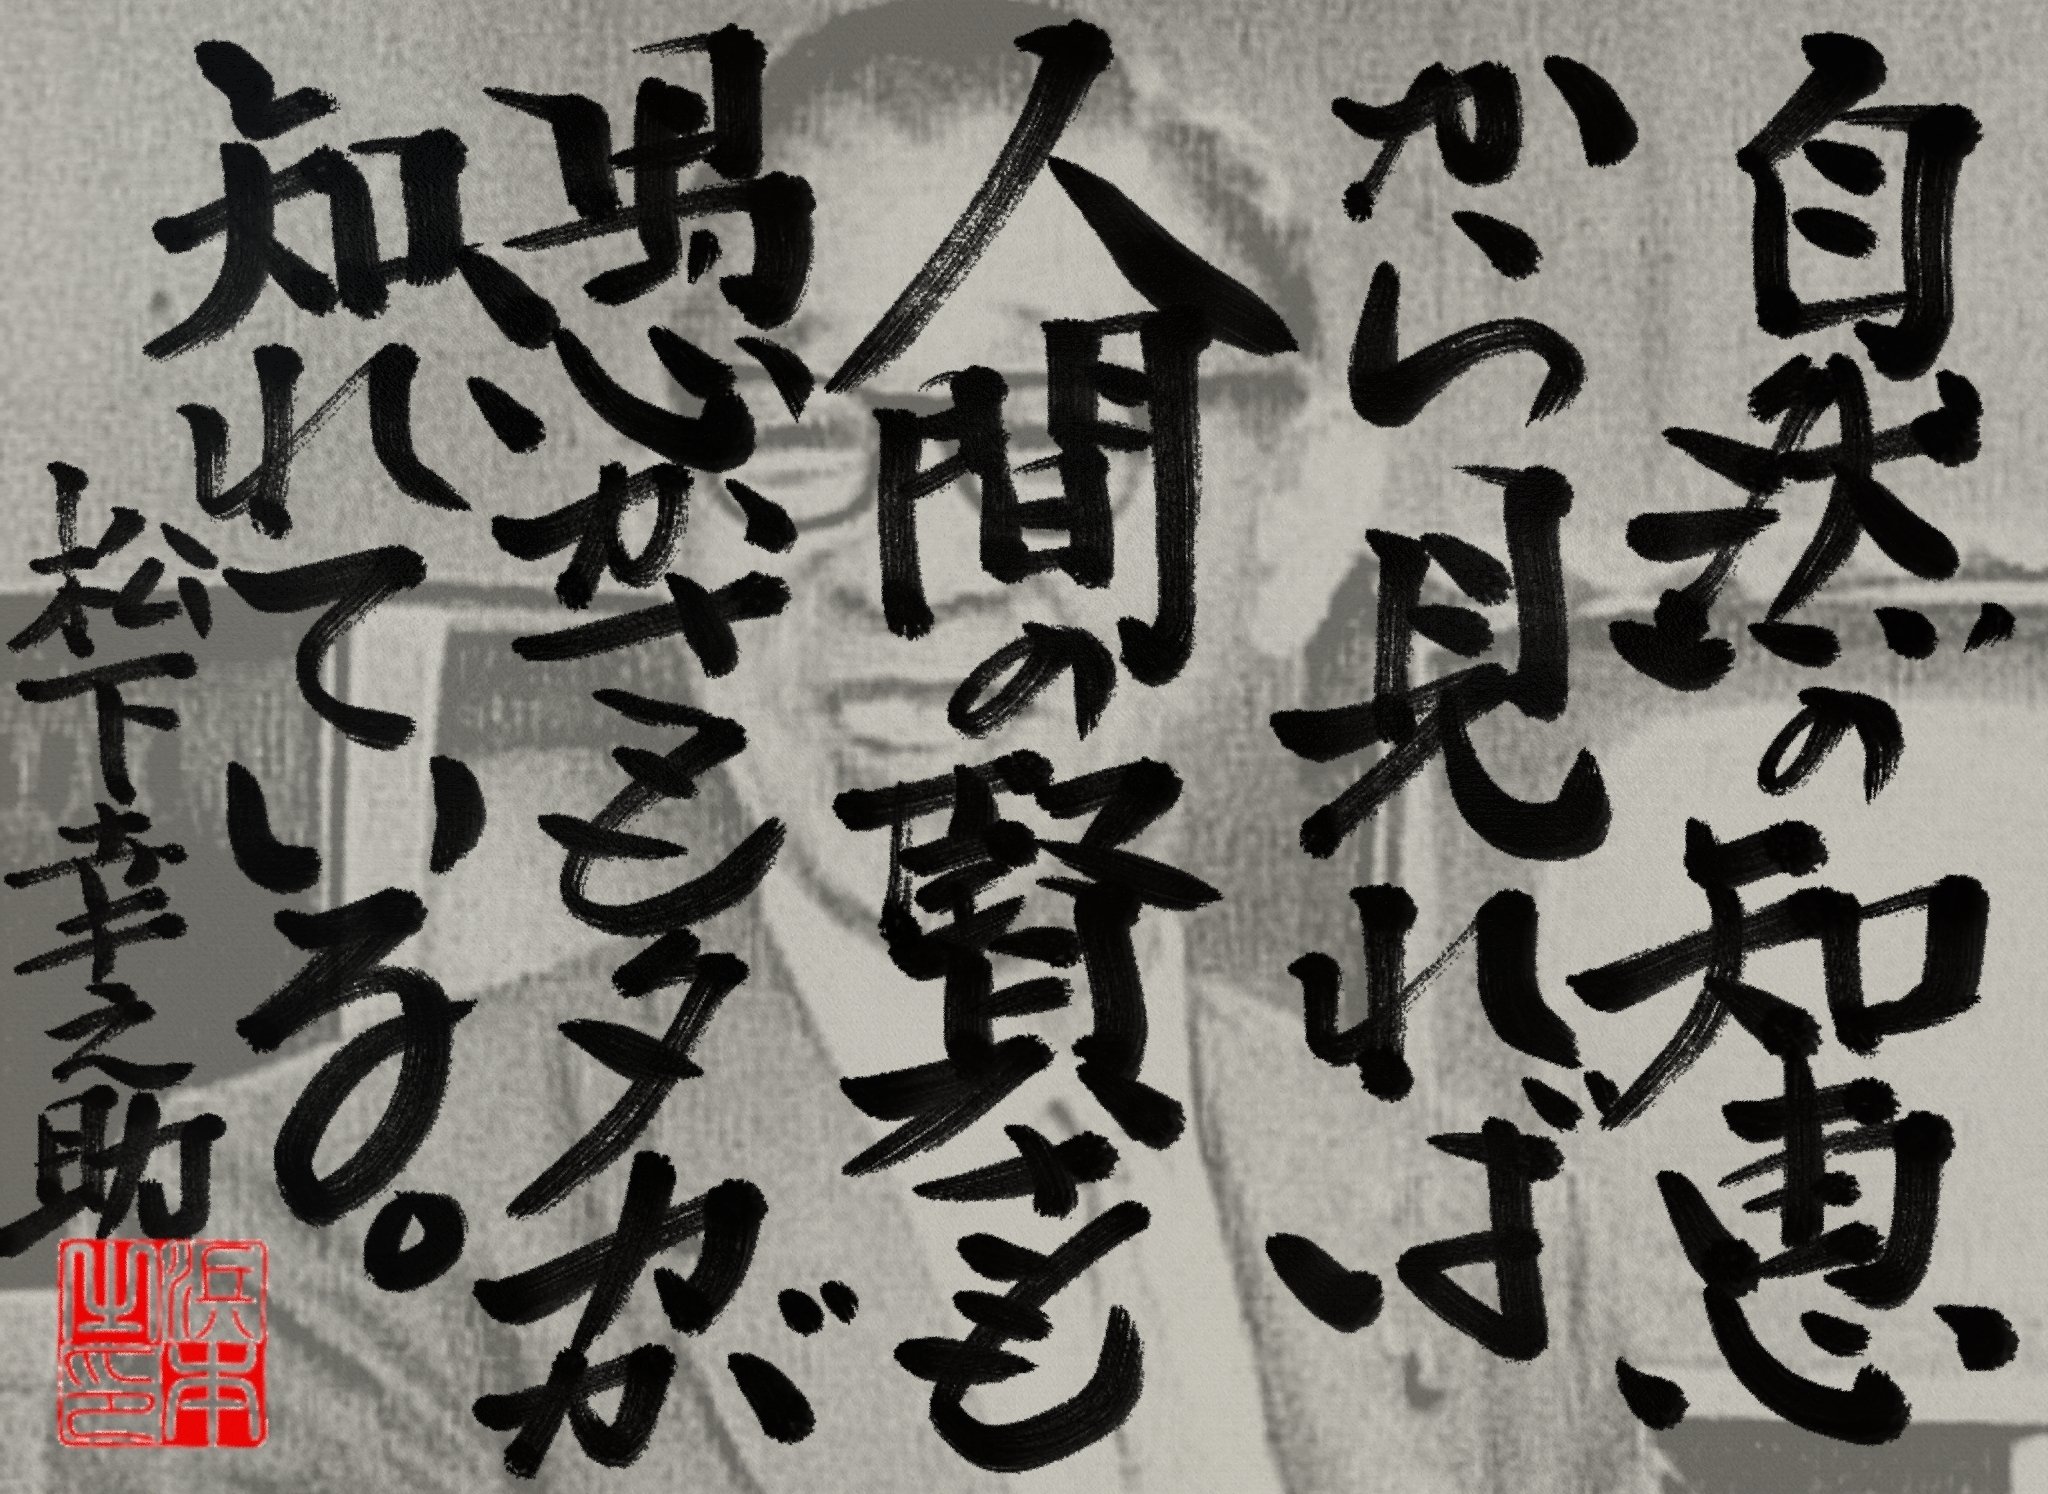 自然の知恵
から見れば
人間の賢さも
愚かさもタカが
知れている。
松下幸之助
浜本之印